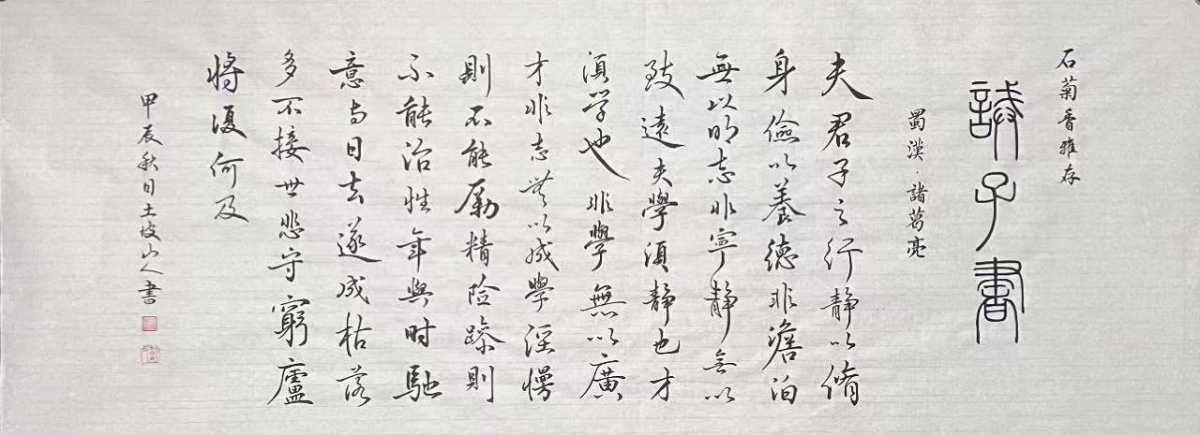 石菊香雅存
誡子書
蜀漢·諸葛亮
夫君子之行静以脩
身儉以養德非澹泊
無以明志非寧静無以
致遠夫學須静也才
須学也非學無以廣
才非志無以成學淫慢
則不能勵精险躁則
不能治性年與时馳
意与日去遂成枯落
多不接世悲守窮廬
將復何及
甲辰秋日土坡山人書